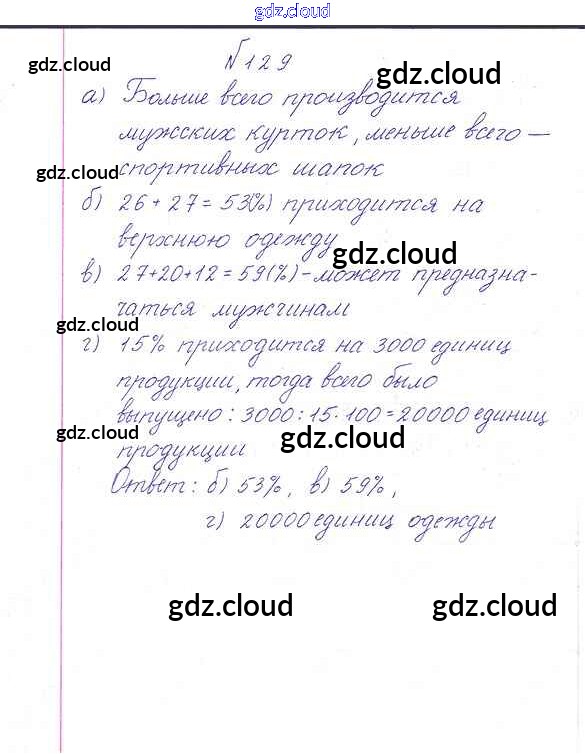 gdz.cloud
№129
gdz.cloud
gdz.cloud
а) Больше всего производится
мужских курток, меньше всего —
gdz.cloud
спортивных шапок
б) 26 + 27 = 53(%) приходится на
верхнюю одежду
gdz.cloud
в) 27+20+12 = 59(%) - может предназна-
чаться мужчинам
gdz.cloud
г) 15% приходится на 3000 единиц
продукции, тогда всего было
выпущено : 3000 : 15 · 100 = 20000 единиц
gdz.cloud
gdz.cloud
продукции
Ответ : б) 53%, в) 59%,
г) 20000 единиц одежды
gdz.cloud
gdz.cloud